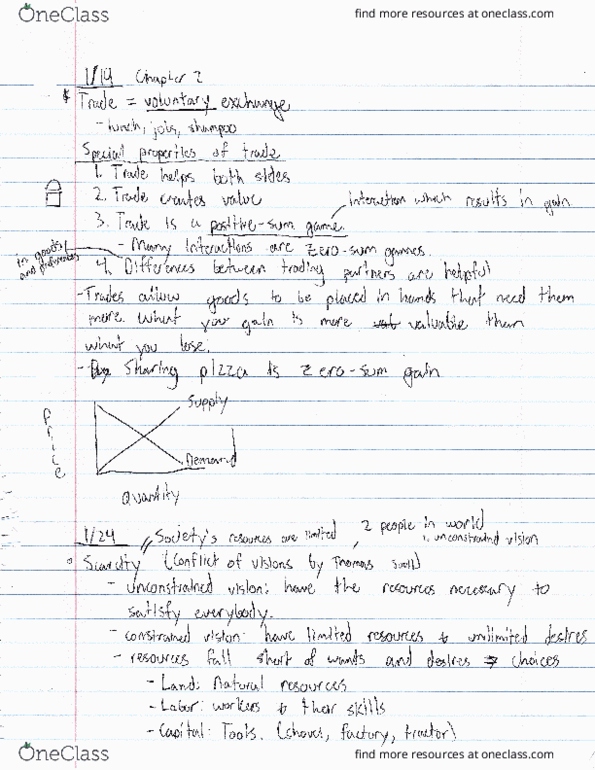 OneClass
find more resources at oneclass.com
1/19 Chapter 2
Trade = voluntary exchange
- lunch, jobs, shampoo
Special properties of trade
1. Trade helps both sides
2. Trade creates value
interaction which results in gain
3. Trade is a positive-sum game.
- Many interactions are zero-sum games.
in goods/
and preferences
4. Differences between trading partners are helpful
- Trades allow goods to be placed in hands that need them
more. What you gain is more valuable than
what you lose.
- Sharing pizza is zero-sum gain
Price
Supply
Demand
Quantity
1/24
Society's resources are limited
2 people in world
1. unconstrained vision
Scarcity (Conflict of visions by Thomas
- unconstrained vision: have the resources necessary to
satisfy everybody.
- constrained vision: have limited resources & unlimited desires
- resources fall short of wants and desires → choices
- Land: Natural resources
- Labor: workers & their skills
- Capital: Tools. (shovel, factory, tractor)
OneClass
find more resources at oneclass.com